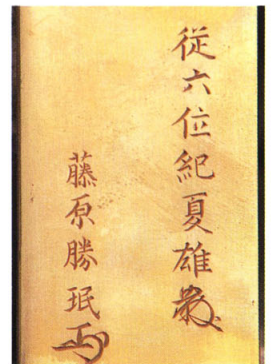 従六位紀夏雄
藤原勝珉